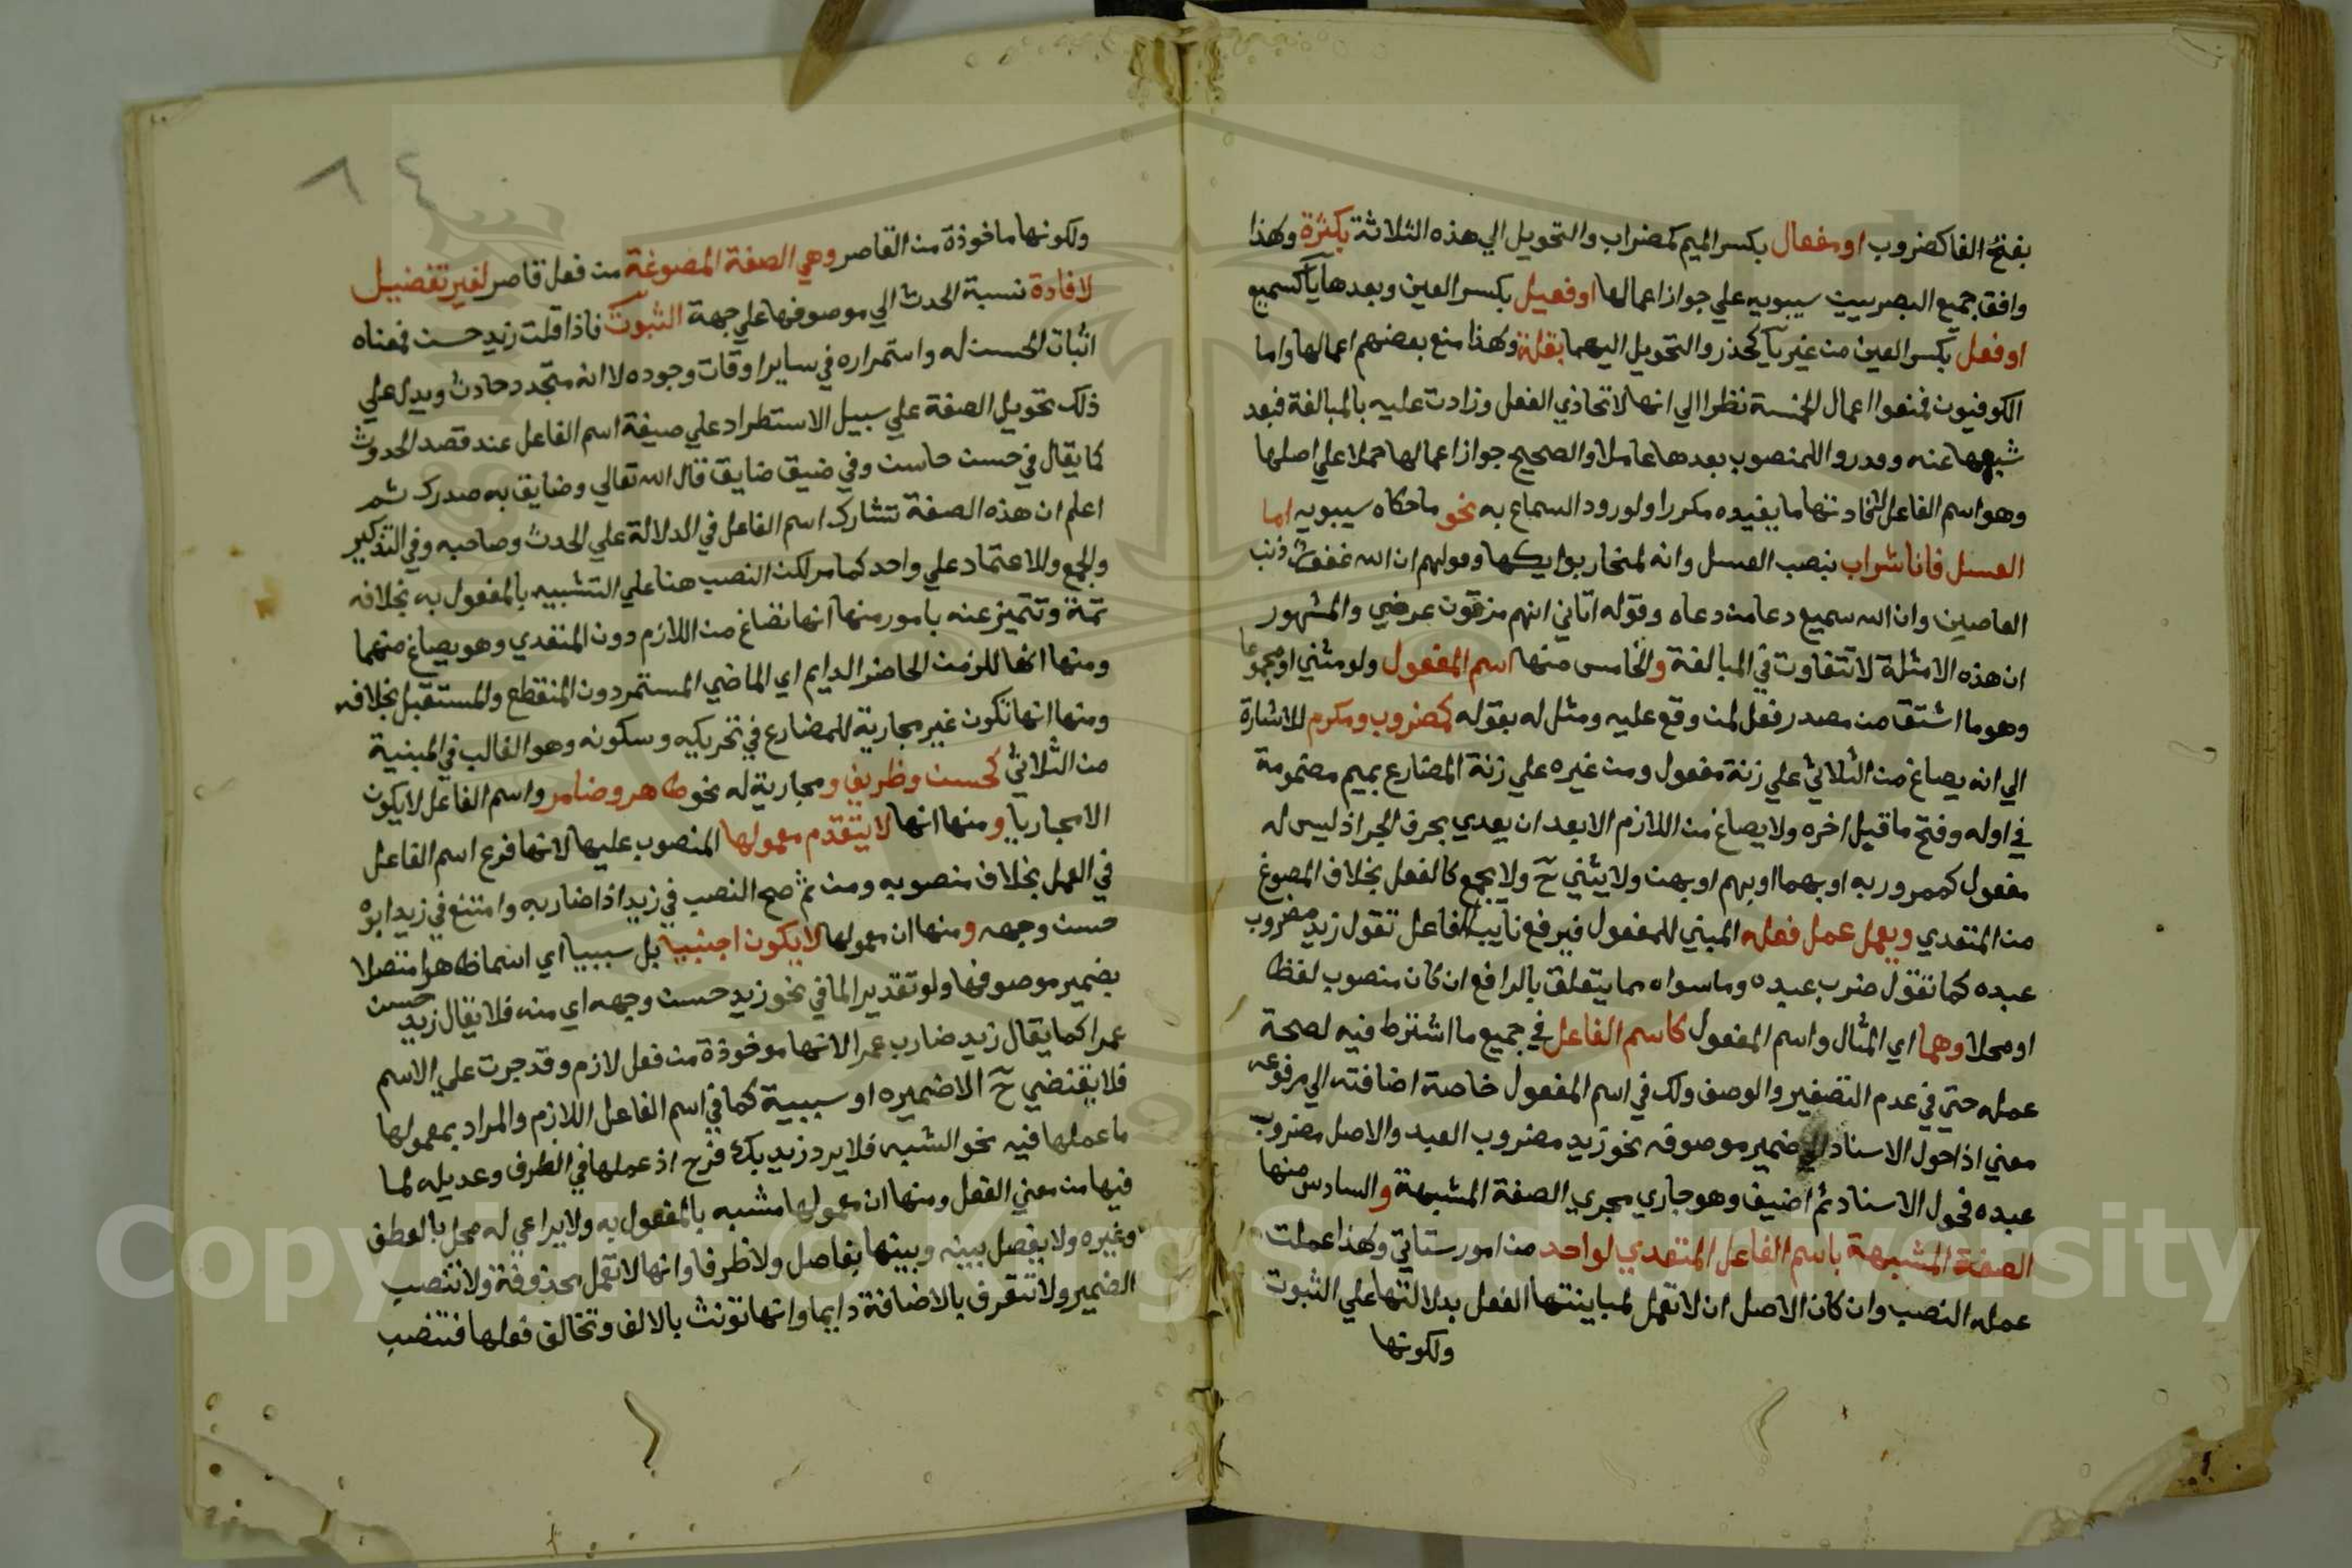 بفتح الفا كضروب او مفعال بكسر الميم كمضراب والتحويل الي هذه الثلاثة بكثرة ولهذا
وافق جميع البصريين سيبويه علي جواز اعمالها او فعيل بكسر العين وبعدها يا كسميع
او فعل بكسر العين من غير يا كحذر والتحويل اليهما بقلة ولهذا منع بعضهم اعمالها واما
الكوفيون فمنعوا اعمال الخمسة نظرا الي انها لا تحاذي الفعل وزادت عليه بالمبالغة فبعد
شبهها عنه وقدروا للمنصوب بعدها عاملا والصحيح جواز اعمالها حملا علي اصلها
وهو اسم الفاعل لافادتها ما يفيده مكررا ولورود السماع به نحو ما حكاه سيبويه اما
العسل فانا شراب بنصب العسل وانه لمنحار بوايكها وقولهم ان الله غفور ذنب
العاصين وان الله سميع دعا من دعاه وقوله اتاني انهم مزقون عرضي والمشهور
ان هذه الامثلة لا تتفاوت في المبالغة والخامس منها اسم المفعول ولو مثني او مجموعا
وهو ما اشتق من مصدر فعل لمن وقع عليه ومثل له بقوله كمضروب ومكرم للاشارة
الي انه يصاغ من الثلاثي علي زنة مفعول ومن غيره علي زنة المضارع بميم مضمومة
في اوله وفتح ما قبل اخره ولا يصاغ من اللازم الا بعد ان يعدي بحرف الجر اذ ليس له
مفعول كممرور به او بهما او بهم او بهن ولا يثني ح ولا يجمع كالفعل بخلاف المصوغ
من المتعدي ويعمل عمل فعله المبني للمفعول فيرفع نايب الفاعل تقول زيد مضروب
عبده كما تقول ضرب عبده وما سواه مما يتعلق بالرافع ان كان منصوب لفظا
او محلا وهما اي المثال واسم المفعول كاسم الفاعل في جميع ما اشترط فيه لصحة
عمله حتي في عدم التصغير والوصف ولك في اسم المفعول خاصة اضافته الي مرفوعه
معني اذا حول الاسناد الي ضمير موصوفه نحو زيد مضروب العبد والاصل مضروب
عبده فحول الاسناد ثم اضيف وهو جاري مجري الصفة المشبهة والسادس منها
الصفة المشبهة باسم الفاعل المتعدي لواحد من امور ستاتي ولهذا عملت
عمله النصب وان كان الاصل ان لا تعمل لمباينتها الفعل بدلالتها علي الثبوت
ولكونها
ولكونها ماخوذة من القاصر وهي الصفة المصوغة من فعل قاصر لغير تفضيل
لافادة نسبة الحدث الي موصوفها علي جهة الثبوت فاذا قلت زيد حسن فمعناه
اثبات الحسن له واستمراره في ساير اوقات وجوده لا انه متجدد حادث ويدل علي
ذلك تحويل الصفة علي سبيل الاستطراد علي صيغة اسم الفاعل عند قصد الحدوث
كما يقال في حسن حاسن وفي ضيق ضايق قال الله تعالي وضايق به صدرك ثم
اعلم ان هذه الصفة تشارك اسم الفاعل في الدلالة علي الحدث وصاحبه وفي التذكير
والجمع والاعتماد علي واحد كما مر لكن النصب هنا علي التشبيه بالمفعول به بخلافه
ثمة وتتميز عنه بامور منها انها تصاغ من اللازم دون المتعدي وهو يصاغ منهما
ومنها انها للزمن الحاضر الدايم اي الماضي المستمر دون المنقطع والمستقبل بخلافه
ومنها انها تكون غير مجارية للمضارع في تحريكه وسكونه وهو الغالب في المبنية
من الثلاثي كحسن وظريف ومجارية له نحو طاهر وضامر واسم الفاعل لا يكون
الا مجاريا ومنها انها لا يتقدم معمولها المنصوب عليها لانها فرع اسم الفاعل
في العمل بخلاف منصوبه ومن ثم صح النصب في زيد اذا ضاربه وامتنع في زيد ابوه
حسن وجهه ومنها ان معمولها لا يكون اجنبيا بل سببيا اي اسما ظاهرا متصلا
بضمير موصوفها ولو تقديرا لما في نحو زيد حسن وجهه اي منه فلا يقال زيد حسن
عمرا كما يقال زيد ضارب عمرا لانها موخوذة من فعل لازم وقد جرت علي الاسم
فلا يقتضي ح الا ضميره او سببية كما في اسم الفاعل اللازم والمراد بمعمولها
ما عملها فيه نحو الشبه فلا يرد زيد بك فرح اذ عملها في الظرف وعديله لما
فيها من معني الفعل ومنها ان معمولها مشبه بالمفعول به ولا يراعي له محل بالعطف
وغيره ولا يفصل بينه وبينها بفاصل ولا ظرفا وانها لا تعمل محذوفة ولا تنصب
الضمير ولا تتعرف بالاضافة دايما وانها تونث بالالف وتخالف فعلها فتنصب
Copyright © King Saud University